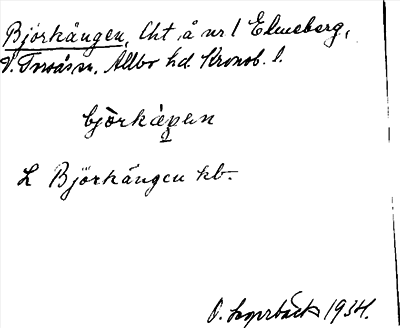 Björkängen, lht å nr 1 Elmeberg,
V. Torsås sn, Allbo hd. Kronob. l.
L Björkängen kb.
O. Lagerbäck 1934.